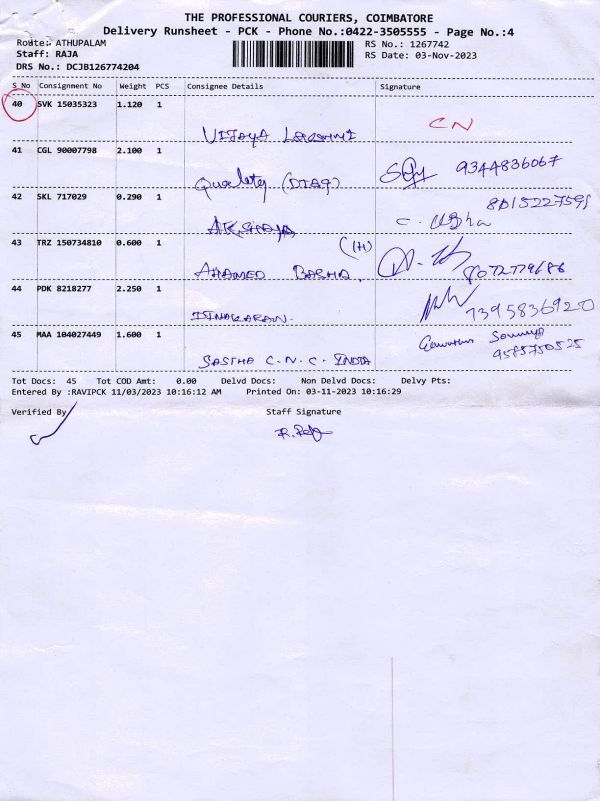 THE PROFESSIONAL COURIERS, COIMBATORE
Delivery Runsheet - PCK - Phone No.:0422-3505555 - Page No.:4
Route: ATHUPALAM RS No.: 1267742
Staff: RAJA RS Date: 03-Nov-2023
DRS No.: DCJB126774204
S No Consignment No Weight PCS Consignee Details Signature
40 SVK 15035323 1.120 1
VIJAYA LAKSHMI CN
41 CGL 90007798 2.100 1
Quality (DTAQ) 9344836067
42 SKL 717029 0.290 1 8015227591
AKSHAYA C. Usha
43 TRZ 150734810 0.600 1 (H)
AHAMED BASHA. 8072779686
44 PDK 8218277 2.250 1
7395836920
45 MAA 104027449 1.600 1 Sowmya
SASTHA C.N.C. INDIA 9585750525
Tot Docs: 45 Tot COD Amt: 0.00 Delvd Docs: Non Delvd Docs: Delvy Pts:
Entered By :RAVIPCK 11/03/2023 10:16:12 AM Printed On: 03-11-2023 10:16:29
Verified By Staff Signature
R. Raja